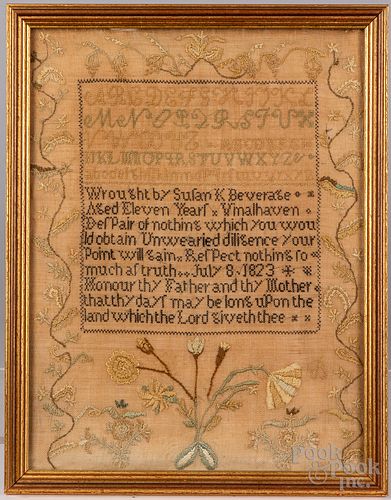 ABCDEFGHIJKL
MNOPQRSTUVX
JKLMNOPQRSTUVWXYZ&
Wrought by Susan K Beverage
Aged Eleven Years Vinalhaven
Despair of nothing which you wou
ld obtain Unwearied diligence your
Point will gain Respect nothing so
much as truth July 8 1823
Honour thy Father and thy Mother
that thy days may be long upon the
land which the Lord giveth thee
Pook
& Pook
inc.